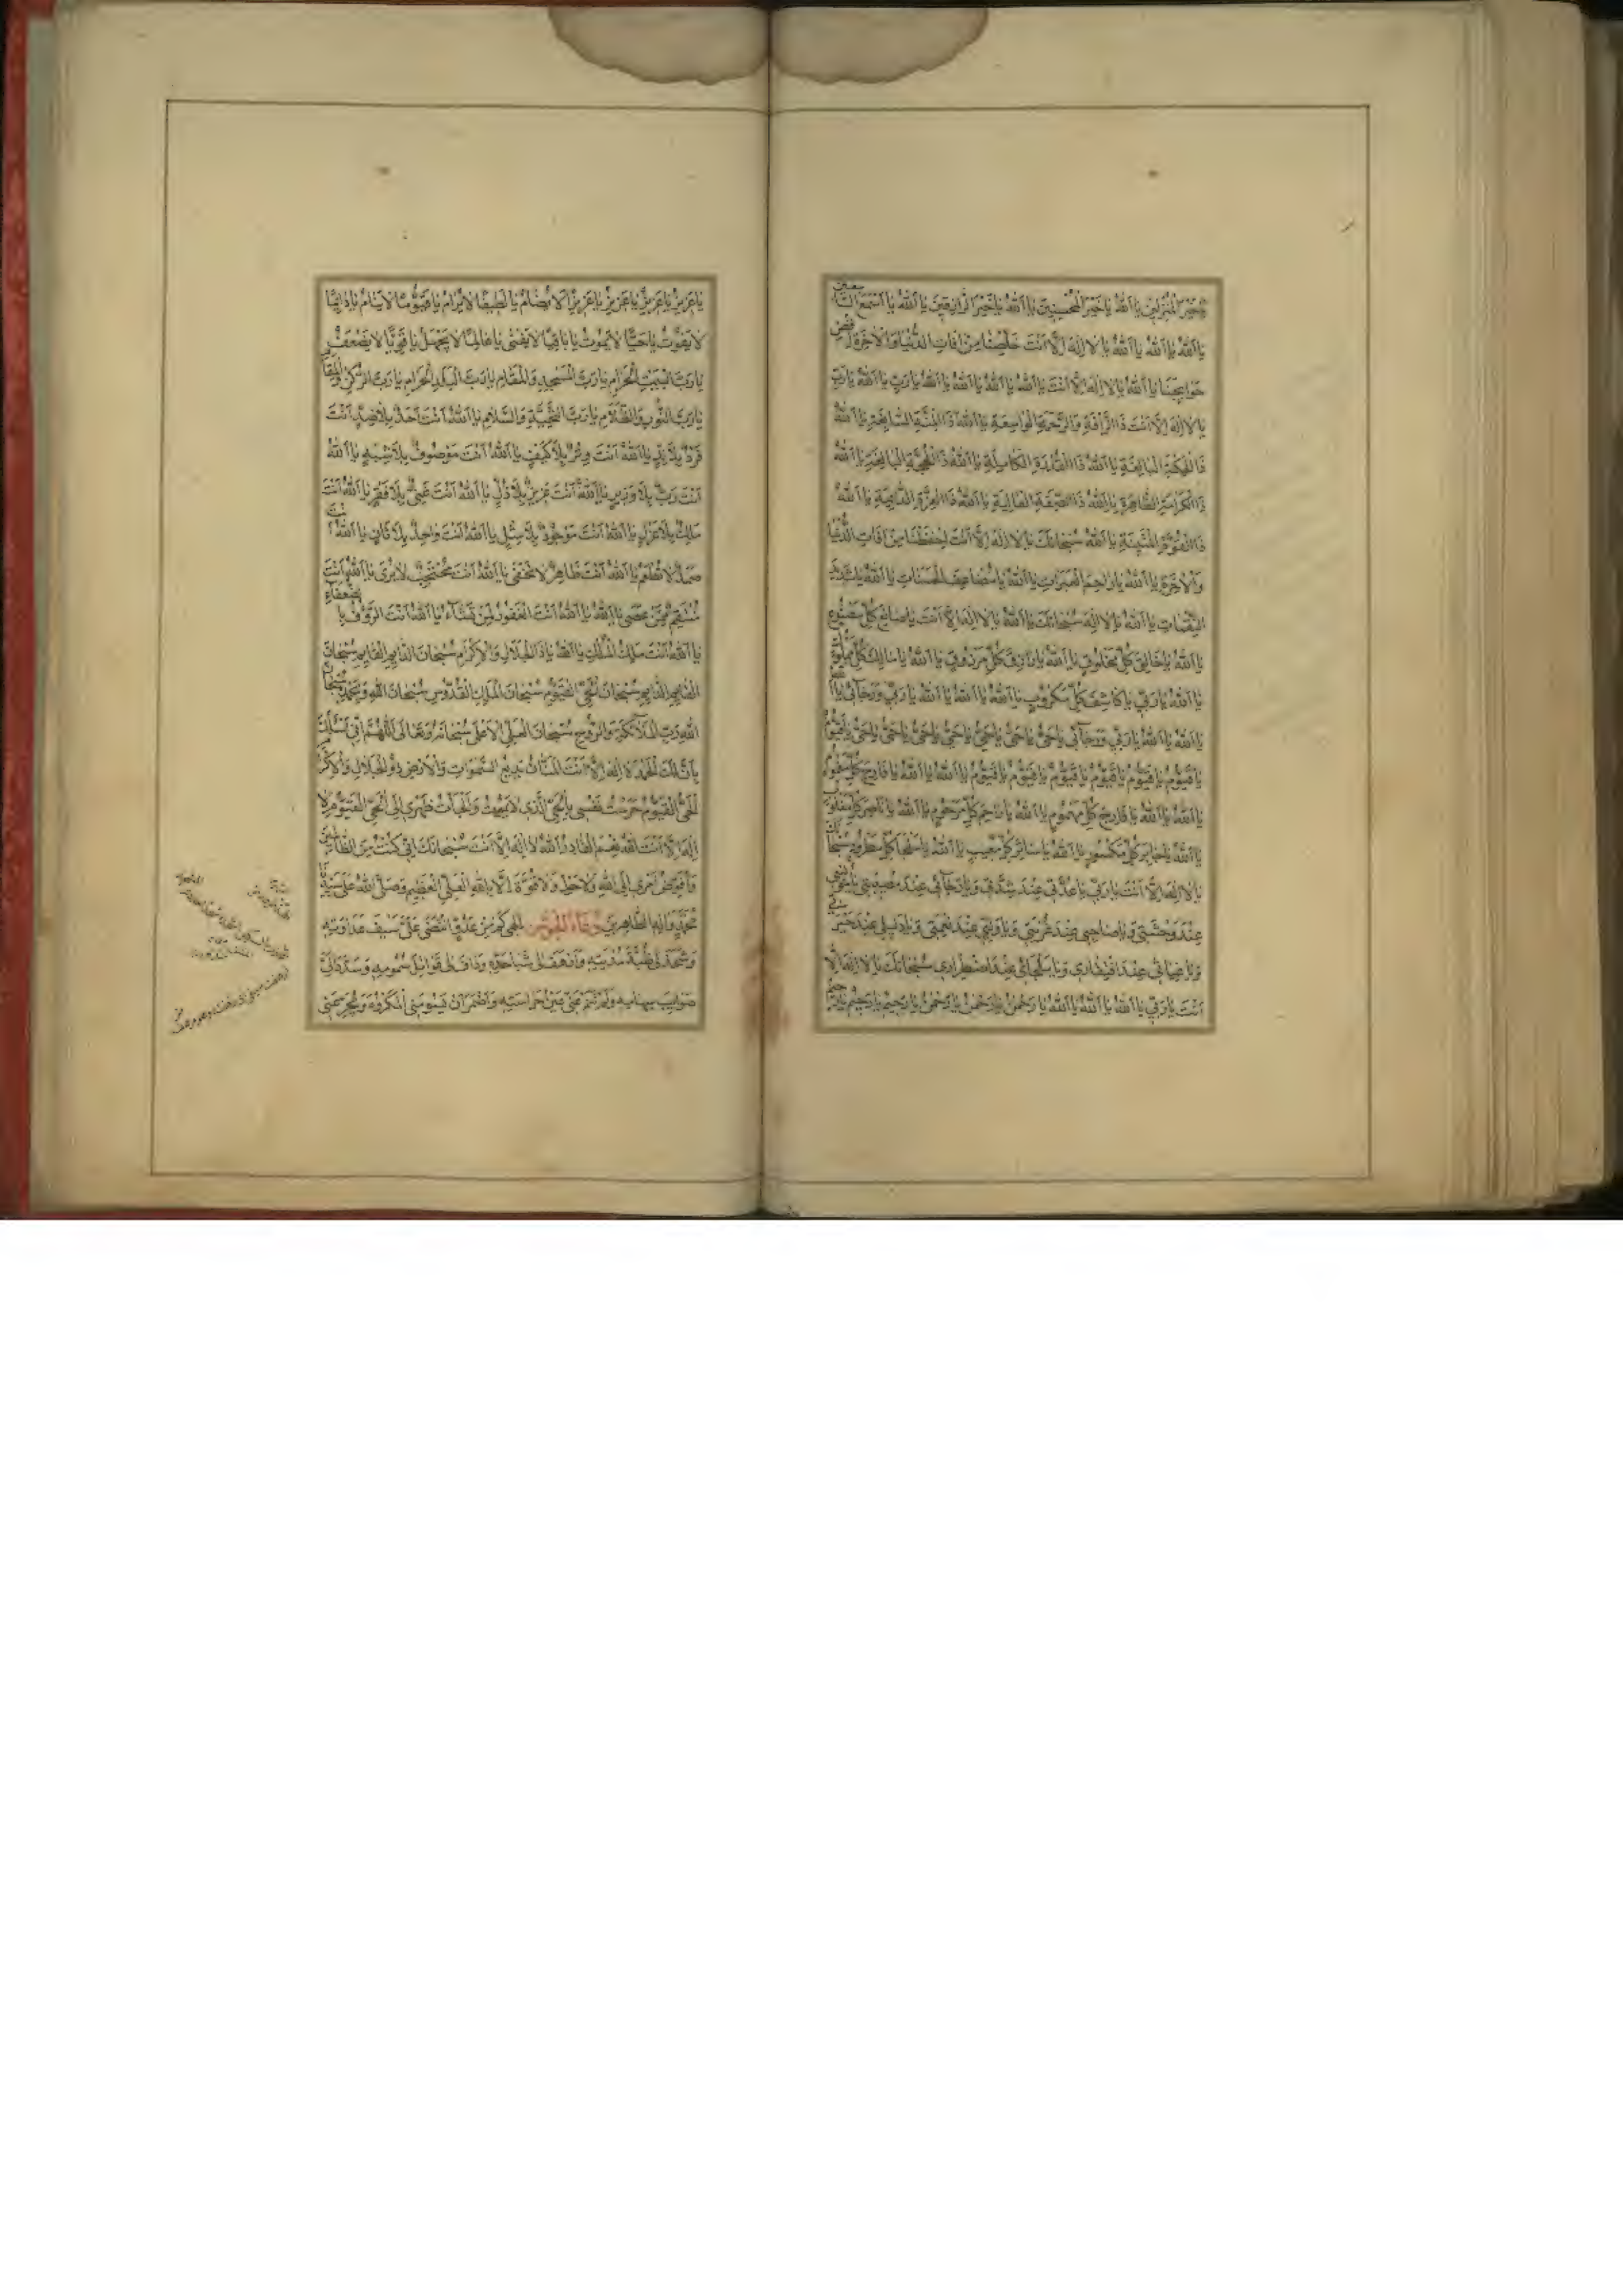 يا خَيرَ المُنزِلينَ يا اَللهُ يا خَيرَ المُحسِنينَ يا اَللهُ يا خَيرَ الرّازِقينَ يا اَللهُ يا اَسمَعَ السّامعين
يا اَللهُ يا اَللهُ يا اَللهُ يا لا اِلهَ اِلّا اَنتَ خَلِّصنا مِن افاتِ الدُّنيا وَالاخِرَةِ
حَوايِجَنا يا اَللهُ يا لا اِلهَ اِلّا اَنتَ يا اَللهُ يا اَللهُ يا اَللهُ يا اَللهُ يا رَبِّ يا اَللهُ يا رَبِّ
يا لا اِلهَ اِلّا اَنتَ ذَا الرَّافَةِ وَالرَّحمَةِ الواسِعَةِ يا اَللهُ ذَا المِنَّةِ السّابِغَةِ يا اَللهُ
ذَا الحِكمَةِ البالِغَةِ يا اَللهُ ذَا القُدرَةِ الكامِلَةِ يا اَللهُ ذَا الحُجَّةِ البالِغَةِ يا اَللهُ
ذَا الكَرامَةِ الظّاهِرَةِ يا اَللهُ ذَا الصِّفَةِ العالِيَةِ يا اَللهُ ذَا العِزَّةِ الدّايِمَةِ يا اَللهُ
ذَا القُوَّةِ المَتينَةِ يا اَللهُ سُبحانَكَ يا لا اِلهَ اِلّا اَنتَ اِحفَظنا مِن افاتِ الدُّنيا
وَالاخِرَةِ يا اَللهُ يا راحِمَ العَبَراتِ يا اَللهُ يا مُضاعِفَ الحَسَناتِ يا اَللهُ يا شَديدَ
النَّقِماتِ يا اَللهُ يا لا اِلهَ سُبحانَكَ يا اَللهُ يا لا اِلهَ اِلّا اَنتَ يا صانِعَ كُلِّ مَصنُوعٍ
يا اَللهُ يا خالِقَ كُلِّ مَخلُوقٍ يا اَللهُ يا رازِقَ كُلِّ مَرزُوقٍ يا اَللهُ يا مالِكَ كُلِّ مَملُوكٍ
يا اَللهُ يا رَبّي يا كاشِفَ كُلِّ مَكرُوبٍ يا اَللهُ يا اَللهُ يا اَللهُ يا رَبّي وَرَجآئي
يا اَللهُ يا اَللهُ يا رَبّي وَرَجآئي يا حَيُّ يا حَيُّ يا حَيُّ يا حَيُّ يا حَيُّ يا حَيُّ يا قَيُّومُ
يا قَيُّومُ يا قَيُّومُ يا قَيُّومُ يا قَيُّومُ يا قَيُّومُ يا اَللهُ يا اَللهُ يا فارِجَ كُلِّ
يا اَللهُ يا اَللهُ يا فارِجَ كُلِّ مَهمُومٍ يا اَللهُ يا راحِمَ كُلِّ مَرحُومٍ يا اَللهُ يا ناصِرَ كُلِّ
يا اَللهُ يا جابِرَ كُلِّ مَكسُورٍ يا اَللهُ يا ساتِرَ كُلِّ مَعيبٍ يا اَللهُ يا مَلجَاَ كُلِّ سُبحانَكَ
يا لا اِلهَ اِلّا اَنتَ يا رَبّي يا عُدَّتي عِندَ شِدَّتي وَيا رَجآئي عِندَ مُصيبَتي يا مُونِسي
عِندَ وَحشَتي وَيا صاحِبي عِندَ غُربَتي وَيا وَلِيّي عِندَ نِعمَتي وَيا دَليلي عِندَ حَيرَتي
وَيا غِنائي عِندَ افتِقاري وَيا مَلجَائي عِندَ اضطِراري سُبحانَكَ يا لا اِلهَ اِلّا
اَنتَ يا رَبّي يا اَللهُ يا اَللهُ يا اَللهُ يا رَحمنُ يا رَحمنُ يا رَحمنُ يا رَحيمُ يا رَحيمُ يا رَحيمُ
يا عَزيزُ يا عَزيزُ يا عَزيزُ يا عَزيزًا لا يُضامُ يا لَطيفًا لا يُرامُ يا قَيُّومًا لا يَنامُ يا دايِمًا
لا يَفُوتُ يا حَيًّا لا يَمُوتُ يا باقِيًا لا يَفنى يا عالِمًا لا يَجهَلُ يا قَوِيًّا لا يَضعَفُ
يا رَبَّ البَيتِ الحَرامِ يا رَبَّ المَسجِدِ وَالمَقامِ يا رَبَّ البَلَدِ الحَرامِ يا رَبَّ الرُّكنِ وَالمَقامِ
يا رَبَّ النُّورِ وَالظَّلامِ يا رَبَّ التَّحِيَّةِ وَالسَّلامِ يا اَللهُ اَنتَ اَحَدٌ بِلا ضِدٍّ اَنتَ
فَردٌ بِلا نِدٍّ يا اَللهُ اَنتَ وِترٌ بِلا كَيفٍ يا اَللهُ اَنتَ مَوصُوفٌ بِلا شِبهٍ يا اَللهُ
اَنتَ رَبٌّ بِلا وَزيرٍ يا اَللهُ اَنتَ عَزيزٌ بِلا ذُلٍّ يا اَللهُ اَنتَ غَنِيٌّ بِلا فَقرٍ يا اَللهُ اَنتَ
مَلِكٌ بِلا عَزلٍ يا اَللهُ اَنتَ مَوجُودٌ بِلا مِثلٍ يا اَللهُ اَنتَ واحِدٌ بِلا ثانٍ يا اَللهُ اَنتَ
صَمَدٌ لا تُطعَمُ يا اَللهُ اَنتَ ظاهِرٌ لا تَخفى يا اَللهُ اَنتَ مُحتَجِبٌ لا يُرى يا اَللهُ اَنتَ
مُنتَقِمٌ مِمَّن عَصى يا اَللهُ يا اَللهُ اَنتَ الغَفُورُ لِمَن تَشاءُ يا اَللهُ اَنتَ الرَّؤُوفُ بِالضُّعَفاءِ
يا اَللهُ اَنتَ مَلِكُ المُلكِ يا اَللهُ يا ذَا الجَلالِ وَالاِكرامِ سُبحانَ الدّايِمِ القايِمِ سُبحانَ
القايِمِ الدّايِمِ سُبحانَ الحَيِّ القَيُّومِ سُبحانَ المَلِكِ القُدُّوسِ سُبحانَ اللهِ وَبِحَمدِهِ سُبحانَ
اللهِ رَبِّ المَلآئِكَةِ وَالرُّوحِ سُبحانَ العَلِيِّ الاَعلى سُبحانَهُ وَتَعالى اَللّهُمَّ اِنّي اَسأَلُكَ
بِاَنَّ لَكَ الحَمدَ لا اِلهَ اِلّا اَنتَ المَنّانُ بَديعُ السَّمواتِ وَالاَرضِ ذُو الجَلالِ وَالاِكرامِ
الحَيُّ القَيُّومُ حَرَستُ نَفسي بِالحَيِّ الَّذي لا يَمُوتُ وَاَلجَأتُ ظَهري اِلَى الحَيِّ القَيُّومِ لا
اِلهَ اِلّا اَنتَ اللهُ نِعمَ القادِرُ اَللهُ لا اِلهَ اِلّا اَنتَ سُبحانَكَ اِنّي كُنتُ مِنَ الظّالِمينَ
وَاُفَوِّضُ اَمري اِلَى اللهِ وَلا حَولَ وَلا قُوَّةَ اِلّا بِاللهِ العَلِيِّ العَظيمِ وَصَلَّى اللهُ عَلى سَيِّدِنا
مُحَمَّدٍ وَالِهِ الطّاهِرينَ دُعاءُ الجَوشَن اِلهي كَم مِن عَدُوٍّ انتَضى عَلَيَّ سَيفَ عَداوَتِهِ
وَشَحَذَ لي ظُبَةَ مُديَتِهِ وَاَرهَفَ لي شَبا حَدِّهِ وَدافَ لي قَواتِلَ سُمُومِهِ وَسَدَّدَ اِلَيَّ
صَوايِبَ سِهامِهِ وَلَم تَنَم عَنّي عَينُ حِراسَتِهِ وَاَضمَرَ اَن يَسُومَنِي المَكرُوهَ وَيُجَرِّعَني